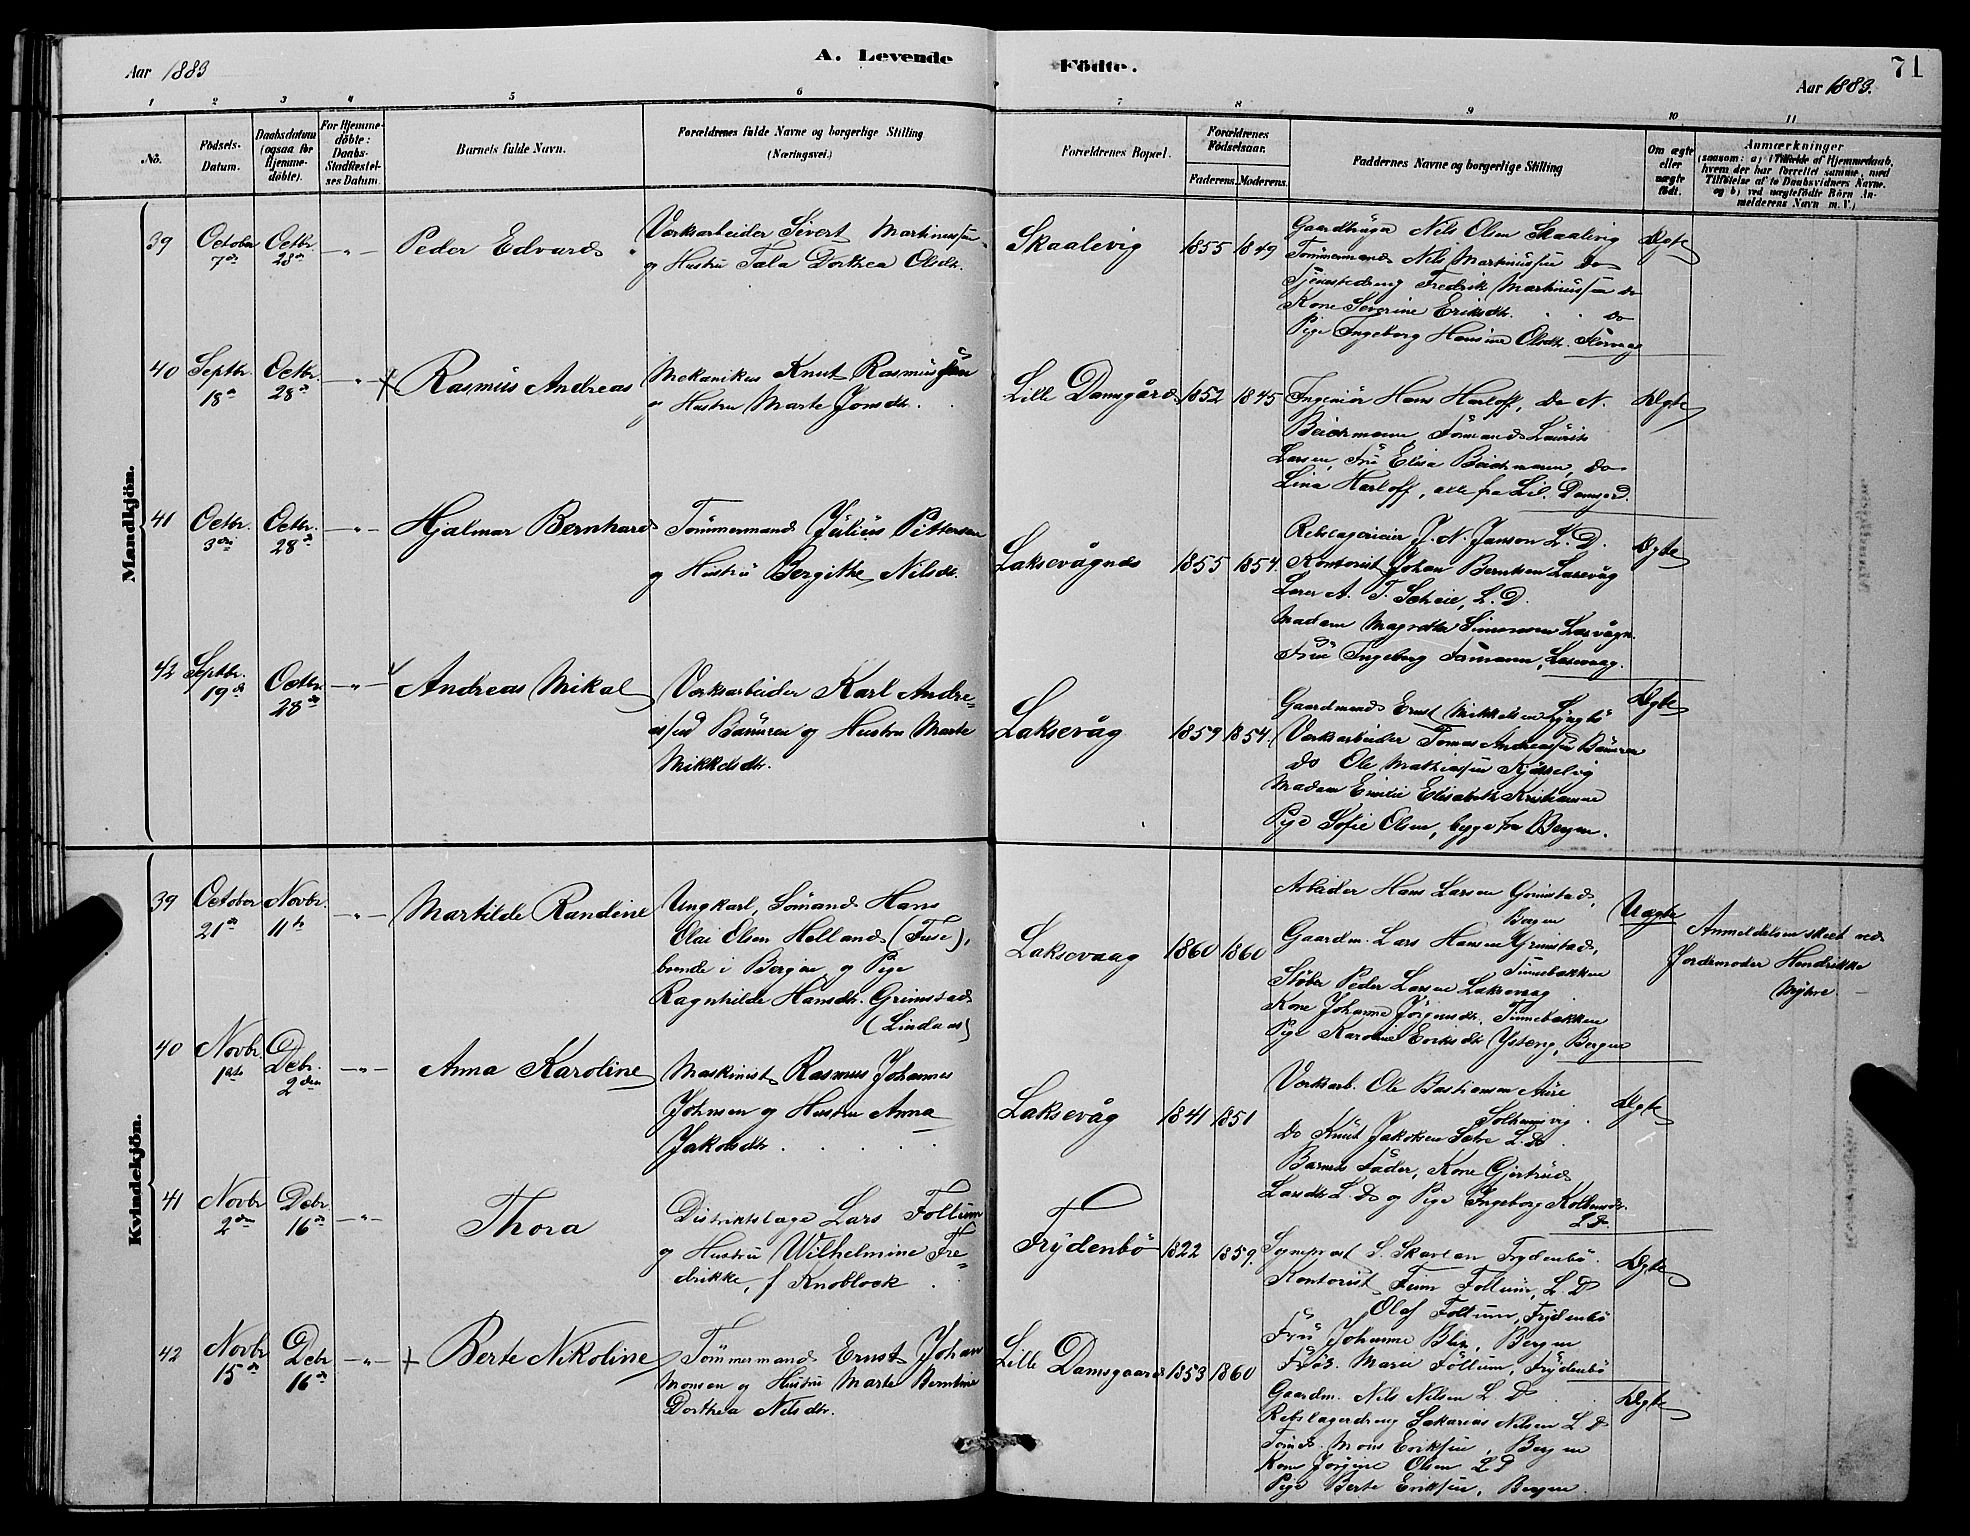 Aar 1883
A. Levende
Födte.
71
Aar 1883.
1 2 3 4 5 6 7 8 9 10 11
No.
Födsels-
Datum.
Daabsdatum
(ogsaa for
Hjemme-
döbte).
For Hjemme-
döbte:
Daabs-
Stadfæstel-
ses Datum.
Barnets fulde Navn.
Forældrenes fulde Navne og borgerlige Stilling
(Næringsvei.)
Forældrenes Bopæl.
Forældrenes
Födselsaar.
Faderens. Moderens.
Faddernes Navne og borgerlige Stilling
Om ægte
eller
uægte
födt.
Anmærkninger
(saasom: a) i Tilfælde af Hjemmedaab,
hvem der har forrettet samme, med
Tilföielse af to Daabsvidners Navne,
og b) ved uægtefödte Börn An-
melderens Navn m. V.)
Mandkjön.
39
October
7de
Octbr.
28de
- " -
Peder Edvard
Værksarbeider Sivert Martinussen
og Hustru Tala Dorthea Olsdtr.
Skaalevig
1855 1849
Gaardbruger Nils Olsen Skaalevig
Tømmermand Nils Martinussen do
Tjenestedreng Fredrik Martinussen do
Kone Severine Eriksdtr. do
Pige Ingeborg Hansine Olsdtr.
Ægte
40
Septbr.
18de
Octbr.
28de
- " -
Rasmus Andreas
Mekanikus Knut Rasmussen
og Hustru Marte Jonsdtr.
Lille Damsgård
1852 1845
Ingeniör Hans Harloff, do N.
Beichmann, Formand Laurits
Larsen, Frú Elisa Beichmann, do
Lina Harloff, alle fra Lil. Damsgrd.
Ægte
41
Octbr.
3die
Octbr.
28de
- " -
Hjalmar Bernhard
Tømmermand Július Pettersen
og Hustrú Bergithe Nilsdtr.
Laksevågnæs
1855 1854.
J. N. Janson L. D.
Kontorist Johan Berntsen Laxevåg
Lærer A. T. Scheie, L. D.
Madam Magrethe Simonsen
Frúe Ingeborg Laxevaag.
Ægte
42
Septbr.
19de
Octbr.
28de
- " -
Andreas Mikal
Værksarbeider Karl Andre-
assen og Hustru Marte
Mikkelsdtr.
Laksevåg
1859 1854.
Gaardmand Ernst Mikkelsen Lyngbö
Værksarbeider Tomas Andreassen
do Ole Mathiassen
Madam Emilie Elisabeth Kristiansen
Pige Sofie Olsen, begge fra Bergen.
Ægte
Kvindekjön.
39
October
21de
Novbr.
11te
- " -
Martilde Randine
Ungkarl, Sömand Hans
Olai Olsen Helland (Fuse),
boende i Bergen og Pige
Ragnhilde Hansdtr. Grimstad
(Lindaas)
Laksevaag
1860 1860
Arbeider Hans Larsen Grimstad,
Bergen
Gaardm. Lars Hansen Grimstad,
Tinnebakken
Støber Peder Larsen Laksevaag
Kone Johanne Jörgensdtr. Tinnebakken
Pige Karoline Eriksdtr. Bergen
Uægte
Anmeldelsen skeet ved
Jordemoder Hendrikke
Myhre
40
Novbr.
1ste
Debr.
2den
- " -
Anna Karoline
Maskinist Rasmus Johannes
Johnsen og Hustru Anna
Jakobsdtr.
Laksevåg
1841 1851
Værksarb. Ole Bastiansen Aúre
Solheimsvig
do Knút Jakobsen L. D.
Barnets Fader, Kone Gjertrud
Larsdtr. L. D. og Pige Ingeborg
L D.
Ægte
41
Novbr
2den
Debr
16de
- " -
Thora
Distriktslæge Lars Follum
og Hustrú Wilhelmine Fre-
drikke, f Knoblock
Frydenbö
1822 1859.
S. Skavlan Frydenbö.
Kontorist Finn Follum, L. D
Olaf Follum, Frydenbö
Frú Johanne Blix, Bergen
Frök. Marie Follum, Frydenbö
Ægte
42
Novbr
15de
Debr
16de
- " -
Berte Nikoline
Tømmermand Ernst Johan
Monsen og Hústrú Marte Berntine
Dorthea Nilsdtr.
Lille Damsgaard
1853 1860
Gaardm. Nils Nilsen L D
Rebslagerdreng Sakarias Nilsen L D
Mons Eriksen, Bergen
Kone Jörgine Olsen L D
Pige Berte Eriksen, Bergen
Ægte